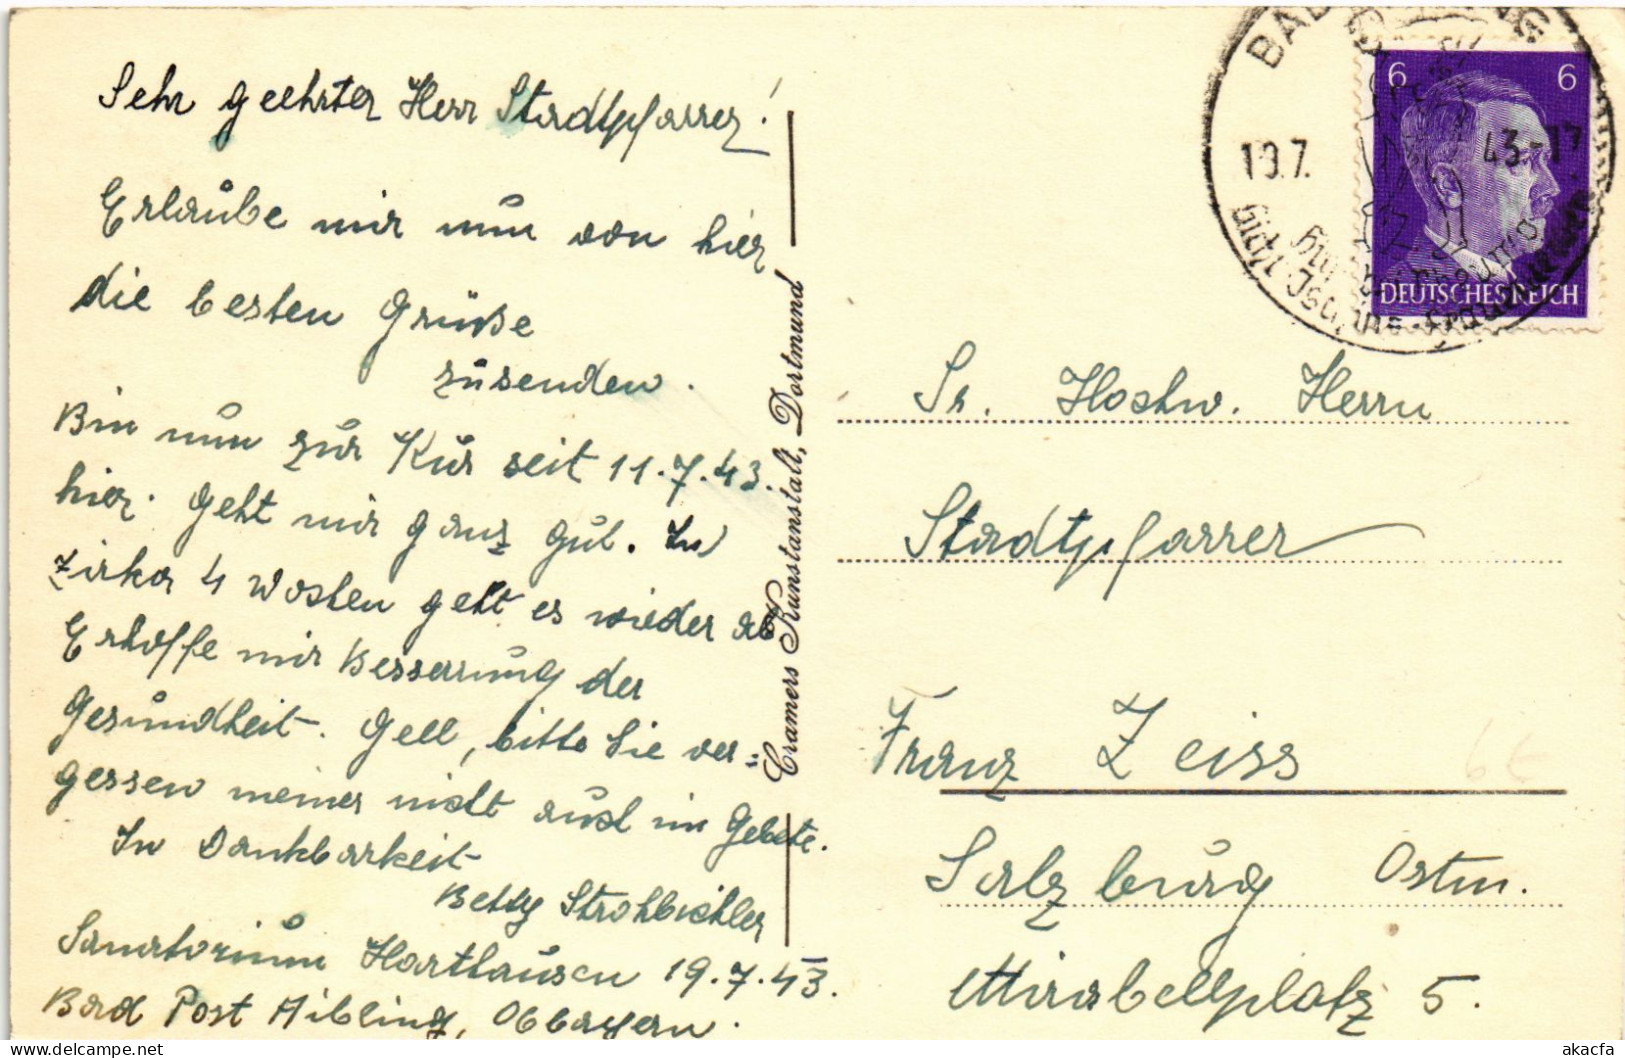 Sehr geehrter Herr Stadtpfarrer!
Erlaube mir nun von hier
die besten Grüße
zusenden.
Bin nun zur Kur seit 11.7.43.
hier. Geht mir ganz gut. In
zirka 4 Wochen geht es wieder ab
Erhoffe mir Besserung der
Gesundheit. Gell, bitte Sie ver=
gessen meiner nicht auch im Gebete.
In Dankbarkeit
Betty Strohbichler
Sanatorium Harthausen 19.7.43.
Bad Post Aibling, Obbayern.
Cramers Kunstanstalt, Dortmund
BAD
19.7.43-17
Gicht Ischias Frauenleiden
6 6
DEUTSCHES REICH
Sr. Hochw. Herrn
Stadtpfarrer
Franz Zeiss
Salzburg Ostm.
Mirabellplatz 5.
6€
akacfa